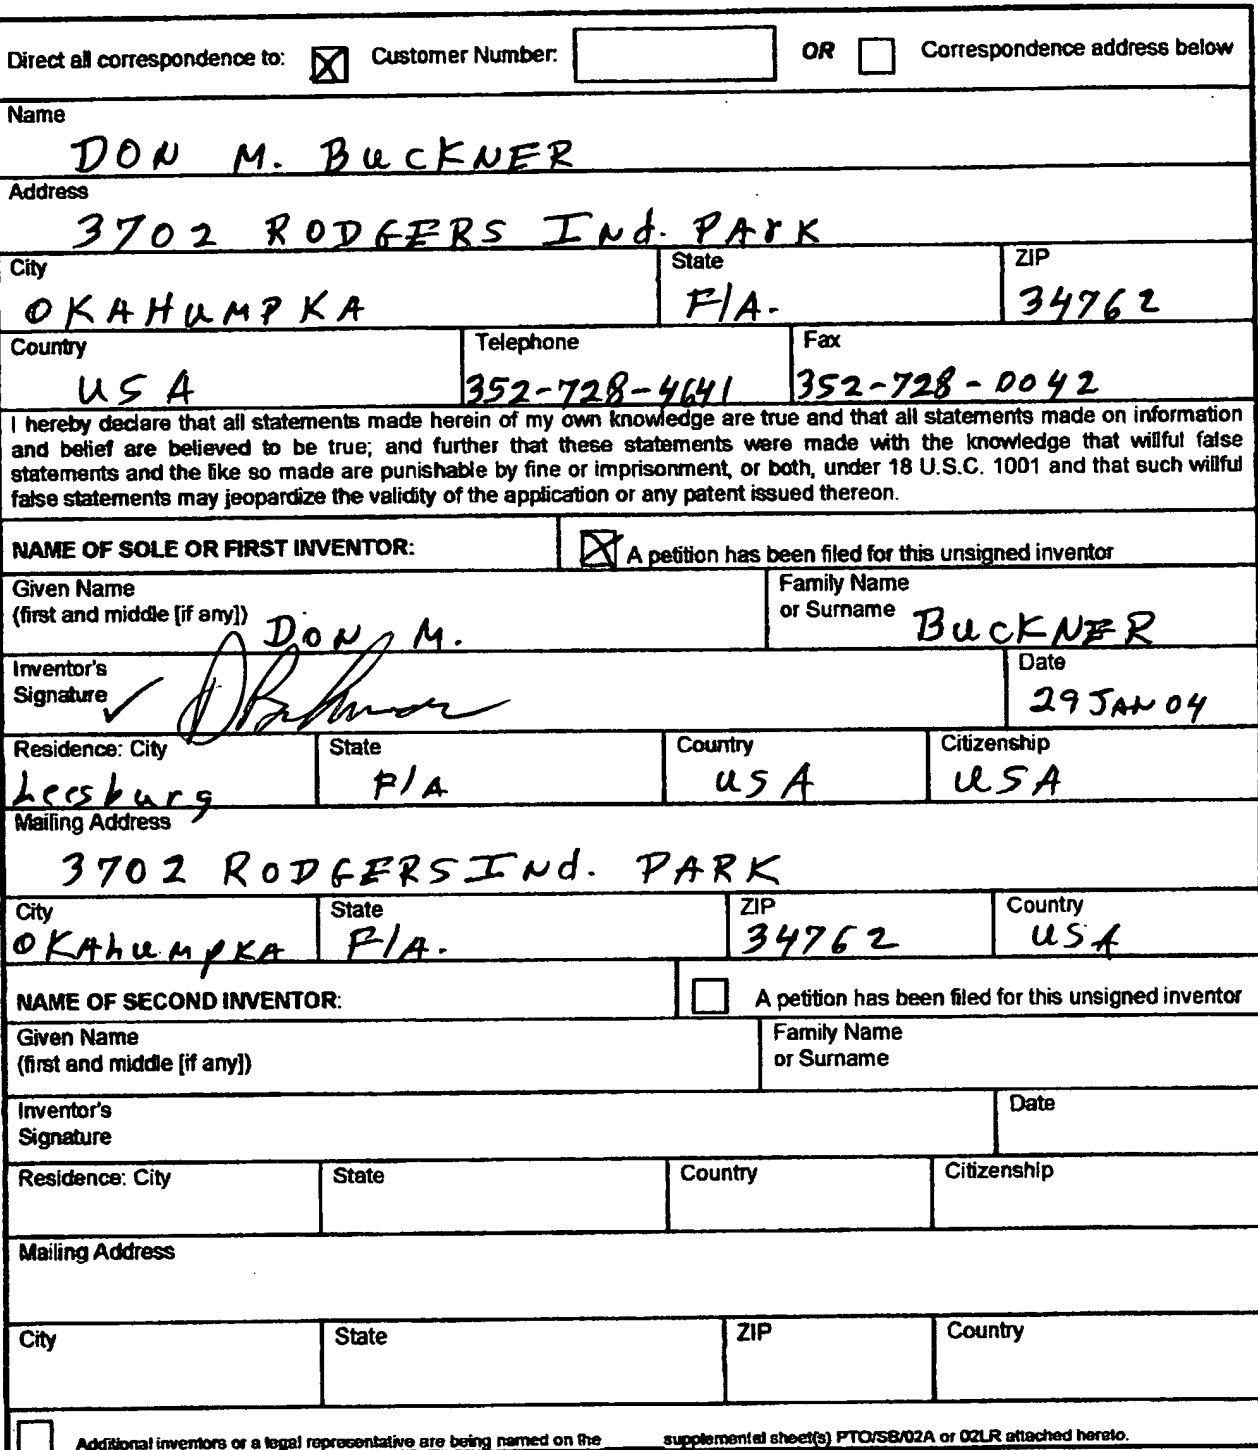 Direct all correspondence to: ☒ Customer Number: OR ☐ Correspondence address below
Name
DON M. BUCKNER
Address
3702 RODGERS INd. PArK
City State ZIP
OKAHUMPKA FlA. 34762
Country Telephone Fax
USA 352-728-4641 352-728-0042
I hereby declare that all statements made herein of my own knowledge are true and that all statements made on information
and belief are believed to be true; and further that these statements were made with the knowledge that willful false
statements and the like so made are punishable by fine or imprisonment, or both, under 18 U.S.C. 1001 and that such willful
false statements may jeopardize the validity of the application or any patent issued thereon.
NAME OF SOLE OR FIRST INVENTOR: ☒ A petition has been filed for this unsigned inventor
Given Name Family Name
(first and middle [if any]) DON M. or Surname BUCKNER
Inventor's Date
Signature ✓ 29 JAN 04
Residence: City State Country Citizenship
Leesburg FlA USA USA
Mailing Address
3702 RODGERS INd. PARK
City State ZIP Country
OKAhumpKA FlA. 34762 USA
NAME OF SECOND INVENTOR: ☐ A petition has been filed for this unsigned inventor
Given Name Family Name
(first and middle [if any]) or Surname
Inventor's Date
Signature
Residence: City State Country Citizenship
Mailing Address
City State ZIP Country
☐ Additional inventors or a legal representative are being named on the supplemental sheet(s) PTO/SB/02A or 02LR attached hereto.